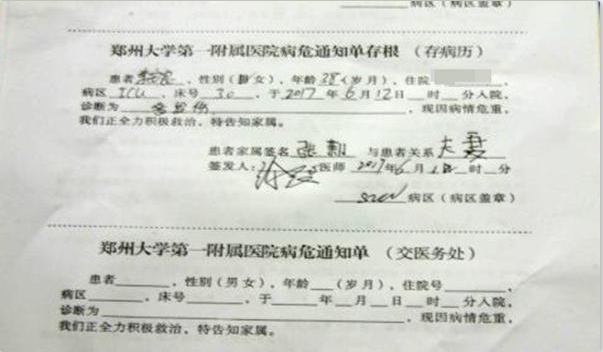 病区（病区盖章）
郑州大学第一附属医院病危通知单存根 （存病历）
患者，性别（男女），年龄38（岁月），住院
病区ICU，床号30，于2017年6月12日 时 分入院，
诊断为多发伤，现因病情危重，
我们正全力积极救治，特告知家属。
患者家属签名 与患者关系夫妻
签发人： 医师 2017年6月 日 时 分
病区（病区盖章）
郑州大学第一附属医院病危通知单 （交医务处）
患者 ，性别（男女），年龄 （岁月），住院号 ，
病区 ，床号 ，于 年 月 日 时 分入院，
诊断为 ，现因病情危重，
我们正全力积极救治，特告知家属。